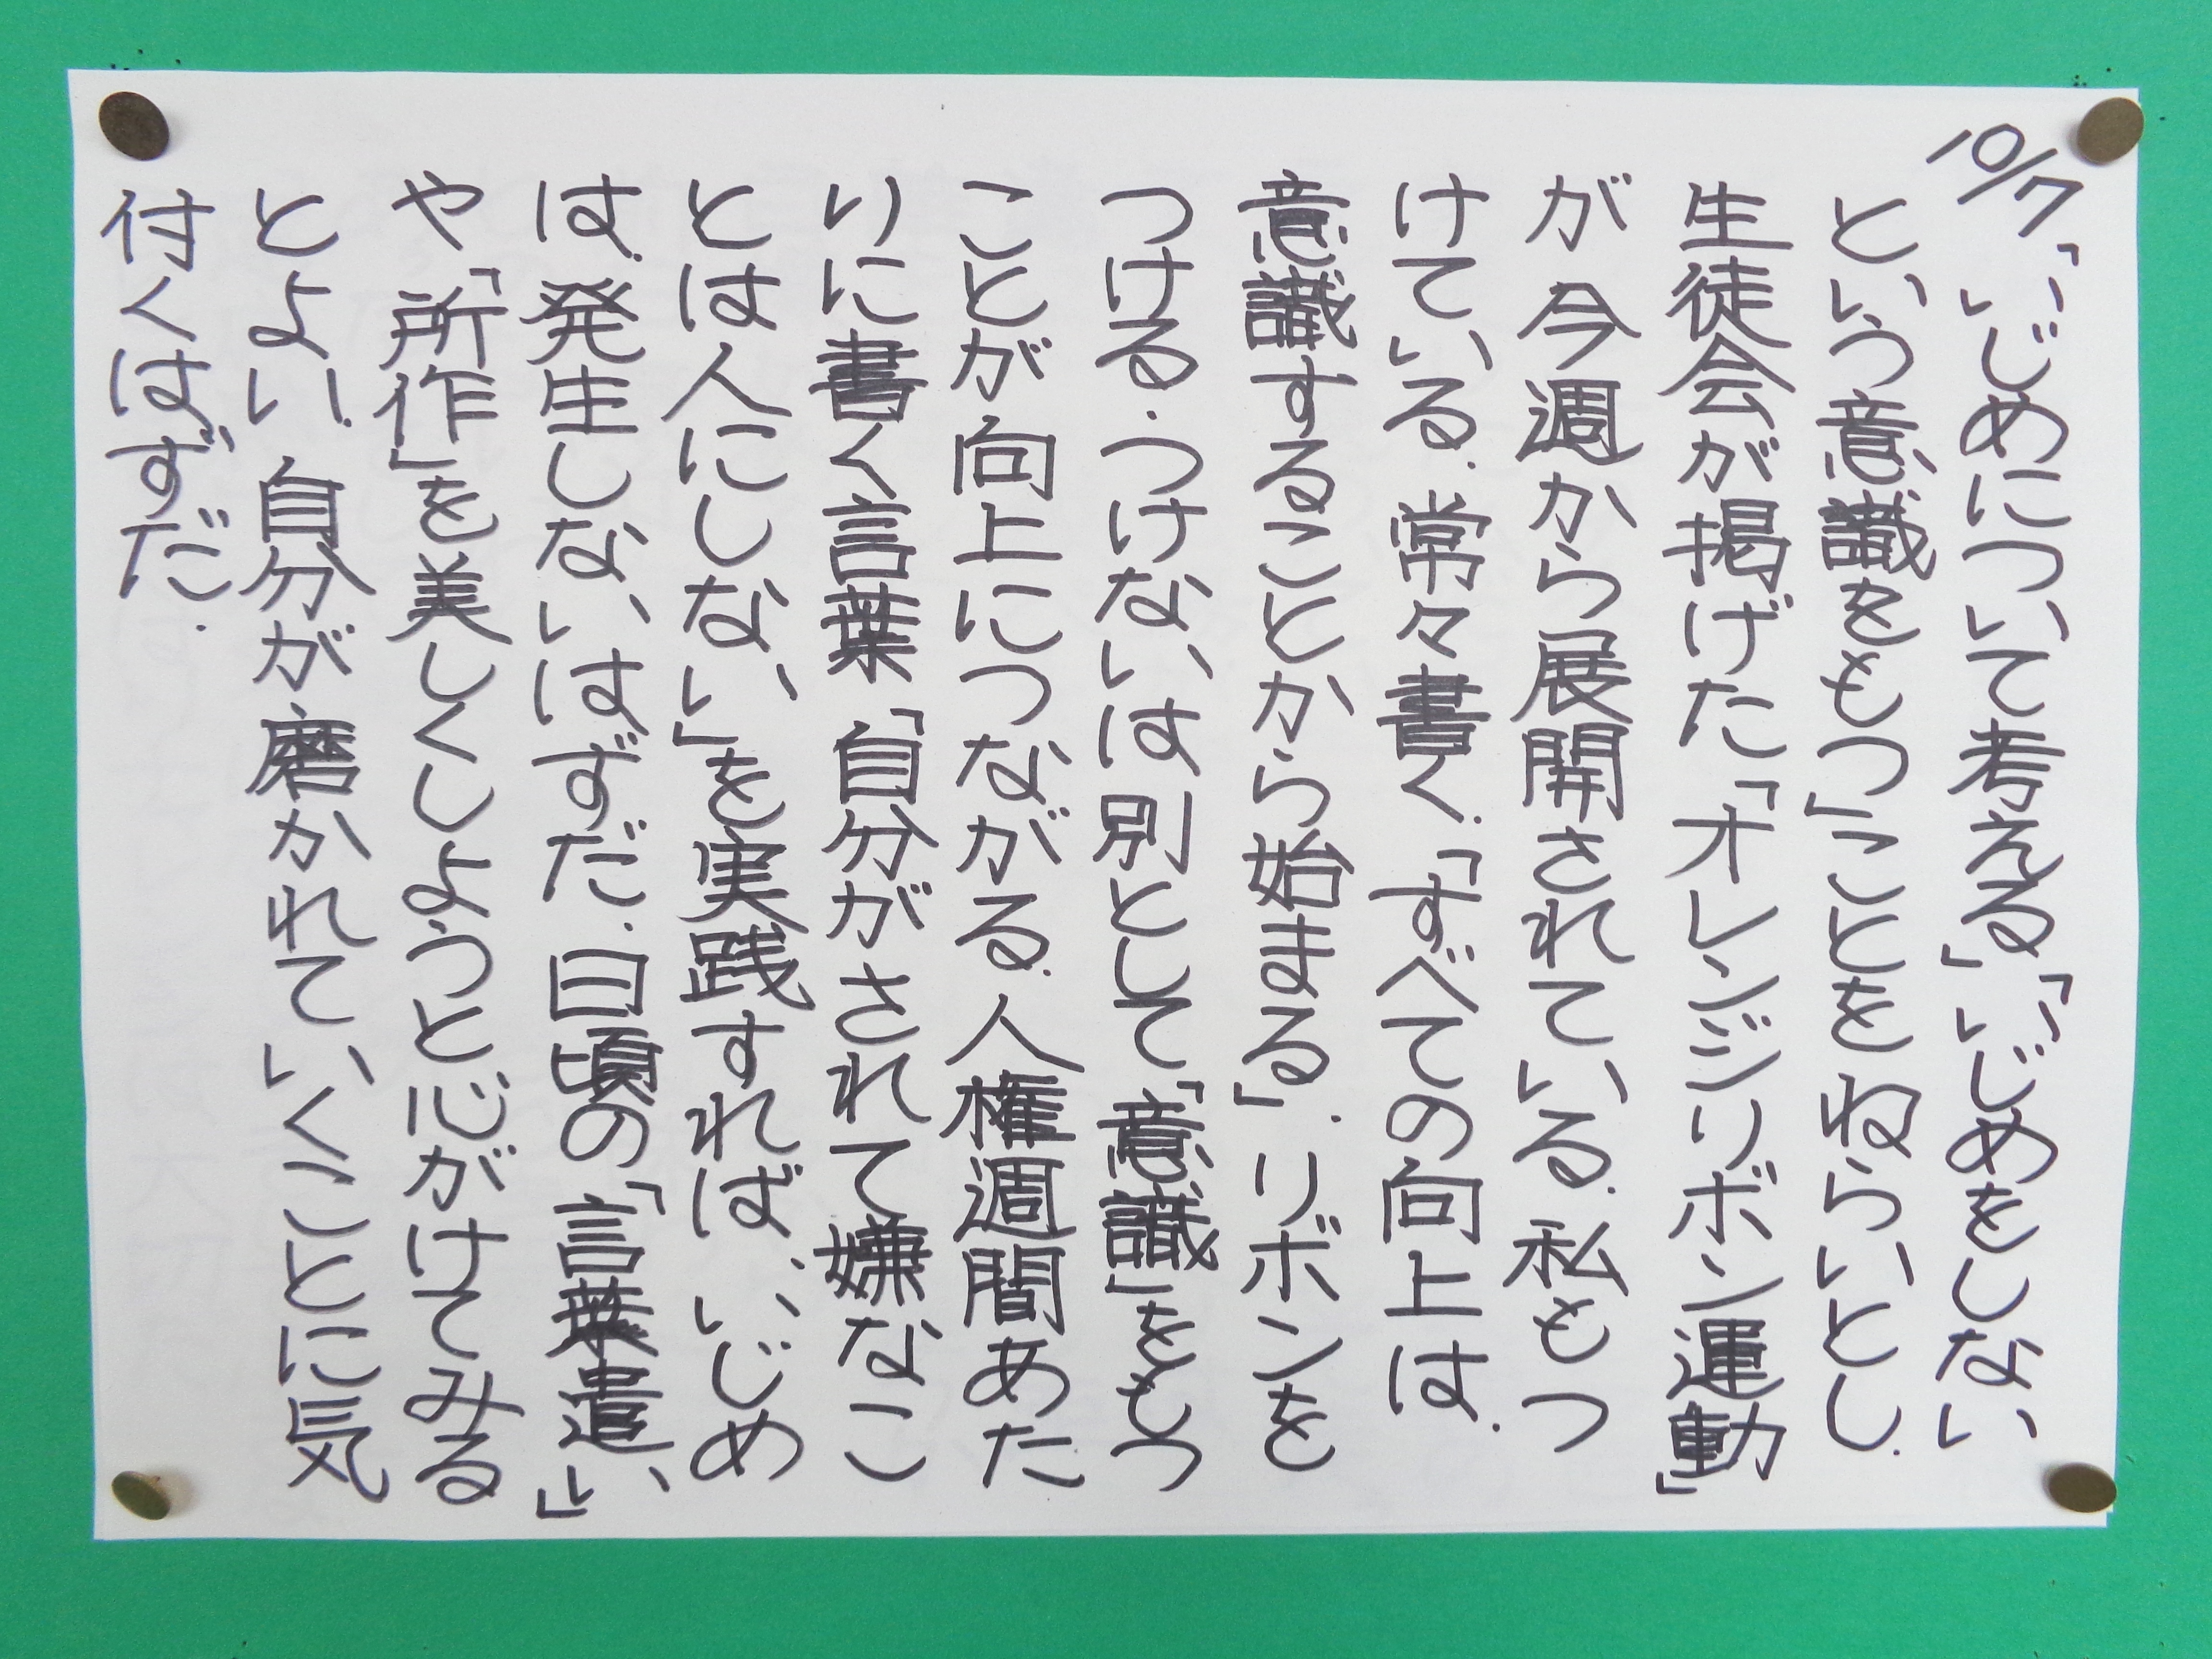 10/7「いじめについて考える」「いじめをしない
という意識をもつ」ことをねらいとし、
生徒会が掲げた「オレンジリボン運動」
が今週から展開されている。私もつ
けている。常々書く、「すべての向上は、
意識することから始まる」。リボンを
つける・つけないは別として、「意識」をもつ
ことが向上につながる。人権週間あた
りに書く言葉「自分がされて嫌なこ
とは人にしない」を実践すれば、いじめ
は、発生しないはずだ。日頃の「言葉遣い」
や「所作」を美しくしようと心がけてみる
とよい。自分が磨かれていくことに気
付くはずだ。